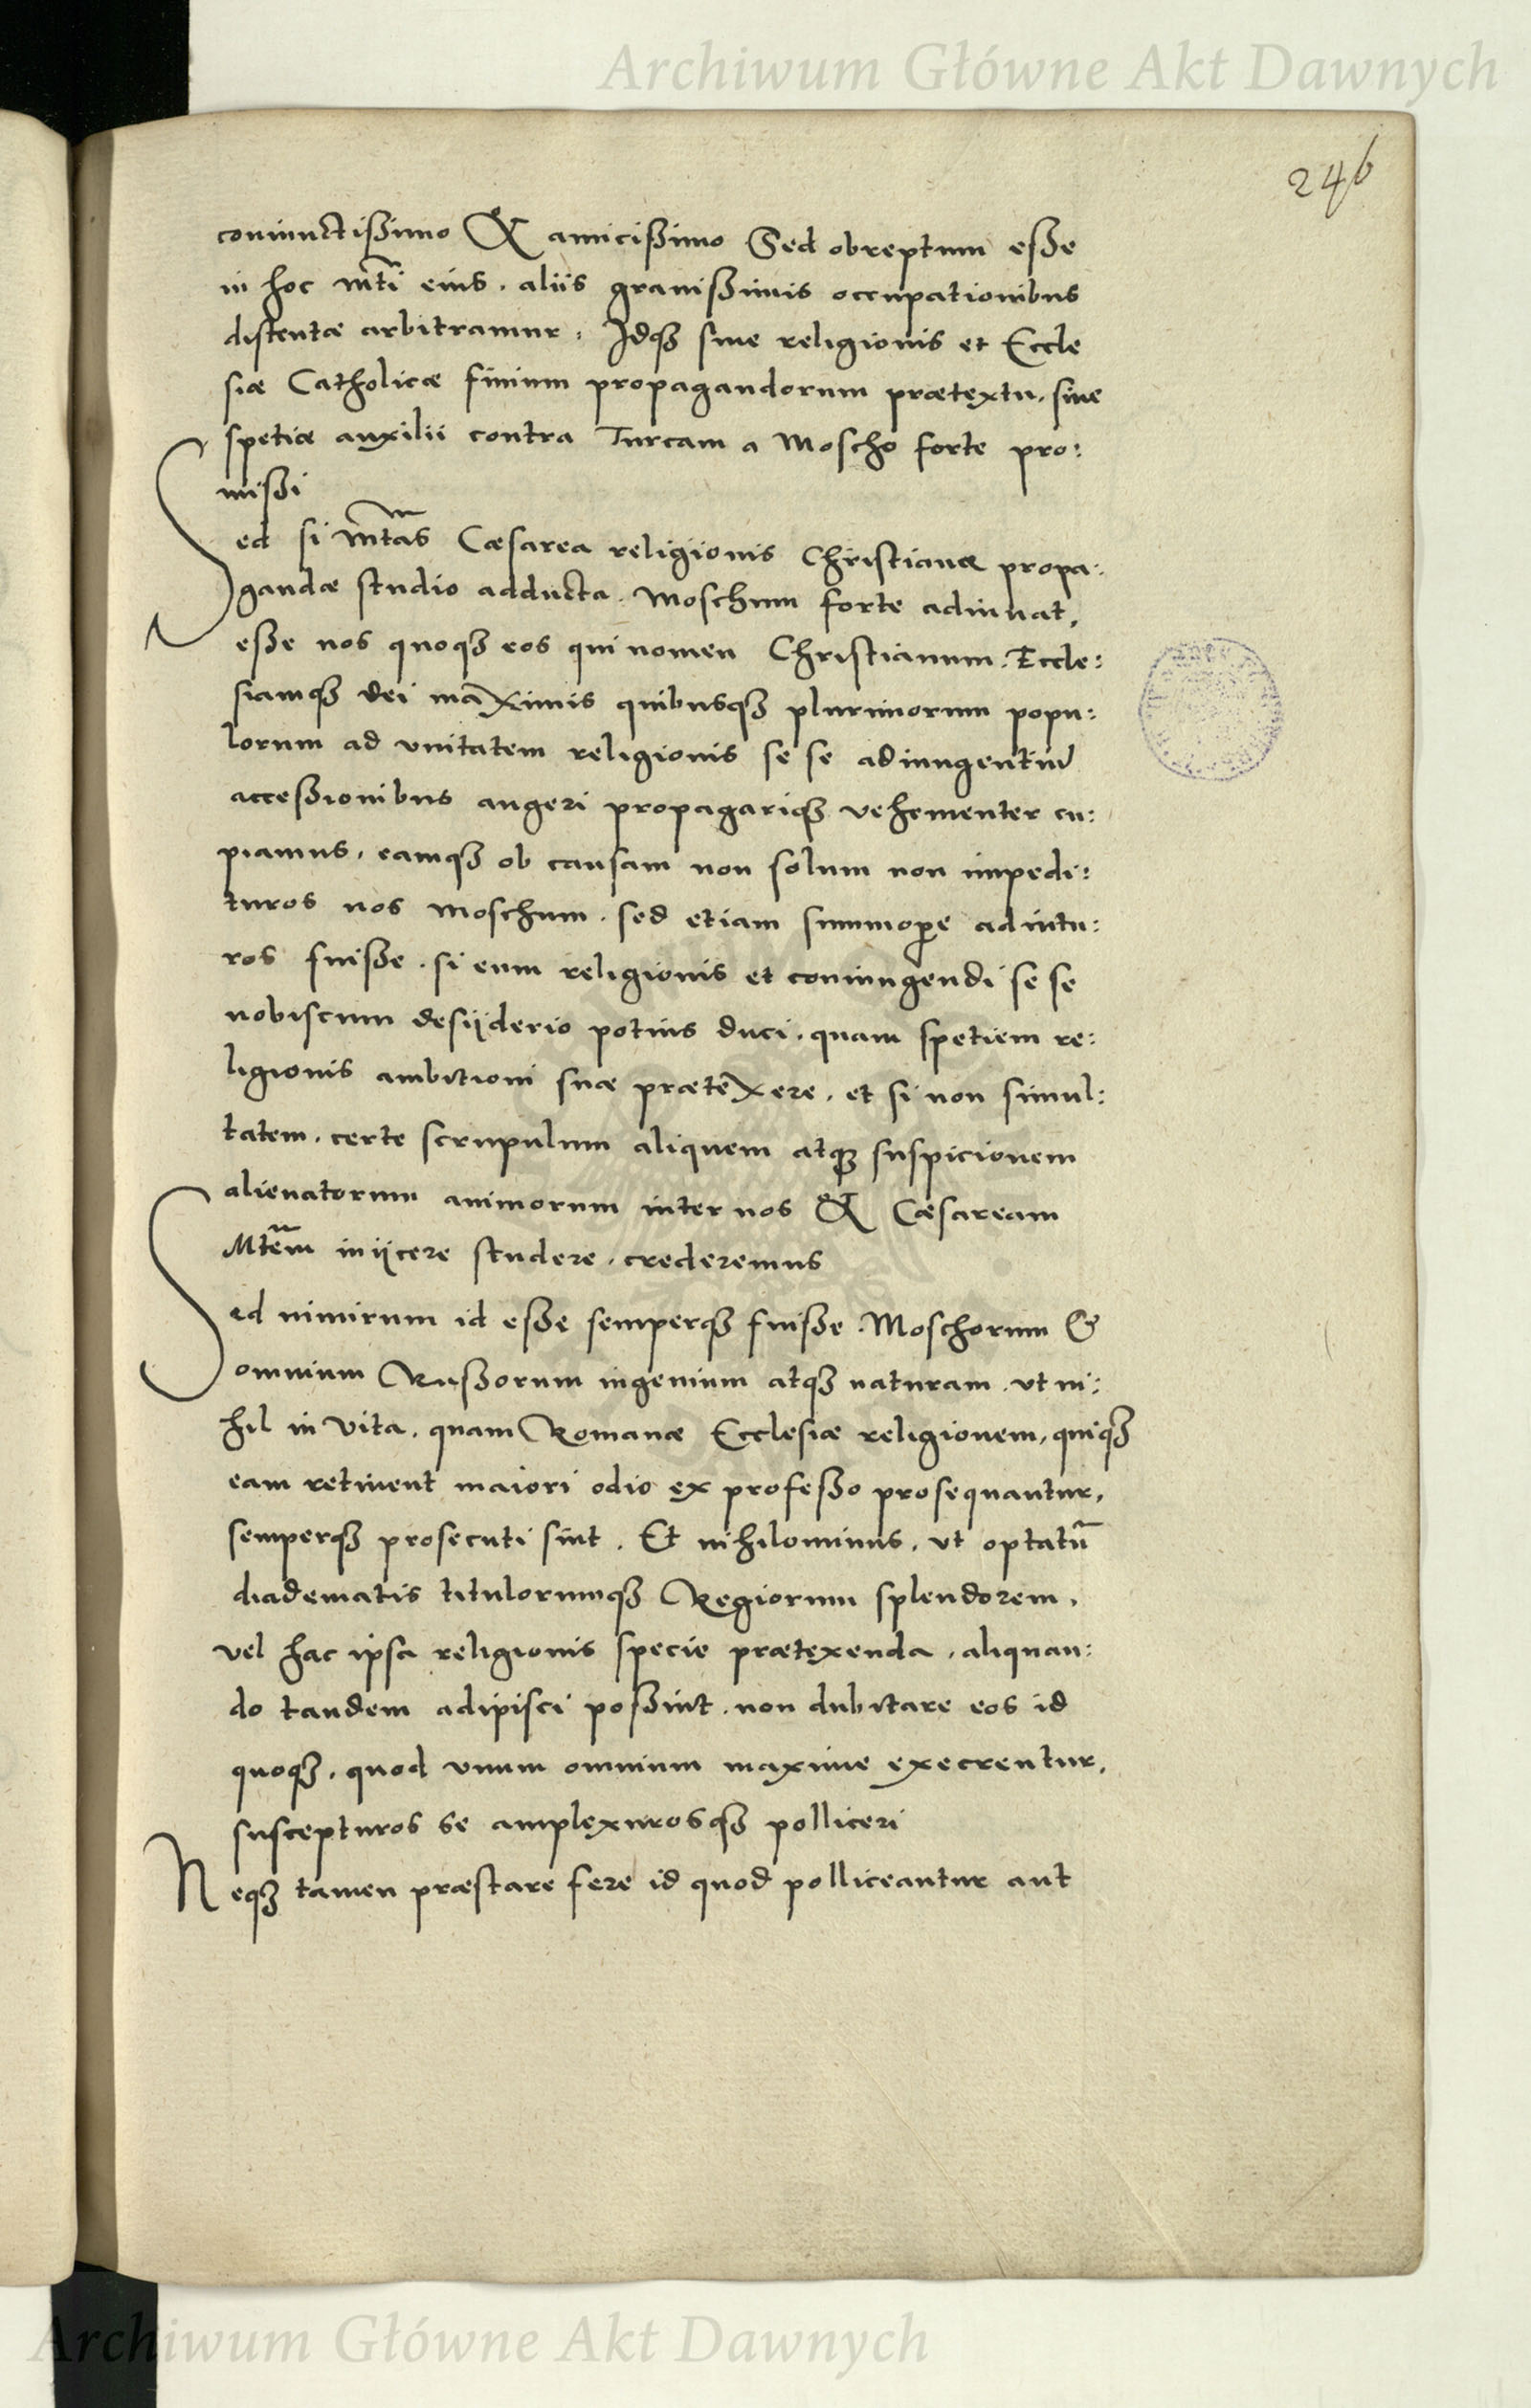 Archiwum Główne Akt Dawnych
246
coniunctissimo & amicissimo Sed obreptum esse
in hoc Mti eius. aliis grauissimis occupationibus
distentæ arbitramur. Idq3 siue religionis et Eccle
siæ Catholicæ finium propagandorum prætextu. siue
spetiæ auxilii contra Turcam a Moscho forte pro:
missi
Sed si Mtas Cæsarea religionis Christianæ propa:
gandæ studio adducta. Moschum forte adiuuat,
esse nos quoq3 eos qui nomen Christianum. Eccle:
siamq3 dei maximis quibusq3 plurimorum popu:
lorum ad vnitatem religionis se se adiungentiū
accessionibus augeri propagariq3 vehementer cu:
piamus. eamq3 ob causam non solum non impedi:
turos nos Moschum. sed etiam summopꝑe adiutu:
ros fuisse. si eum religionis et coniungendi se se
nobiscum desijderio potius duci. quam spetiem re:
ligionis ambitioni suæ prætexere. et si non simul:
tatem. certe scrupulum aliquem atq3 suspicionem
alienatorum animorum inter nos & Cæsaream
Mtem iniicere studere. crederemus
Sed nimirum id esse semperq3 fuisse. Moschorum &
omnium Russorum ingenium atq3 naturam. vt ni:
hil in vita. quam Romanæ Ecclesiæ religionem, quiq3
eam retinent maiori odio ex professo prosequantur,
semperq3 prosecuti sint. Et nihilominus. vt optatū
diadematis titulorumq3 Regiorum splendorem.
vel hac ipsa religionis specie prætexenda. aliquan:
do tandem adipisci possint. non dubitare eos id
quoq3. quod vnum omnium maxime execrentur,
suscepturos se amplexurosq3 polliceri
Neq3 tamen præstare fere id quod polliceantur aut
Archiwum Główne Akt Dawnych